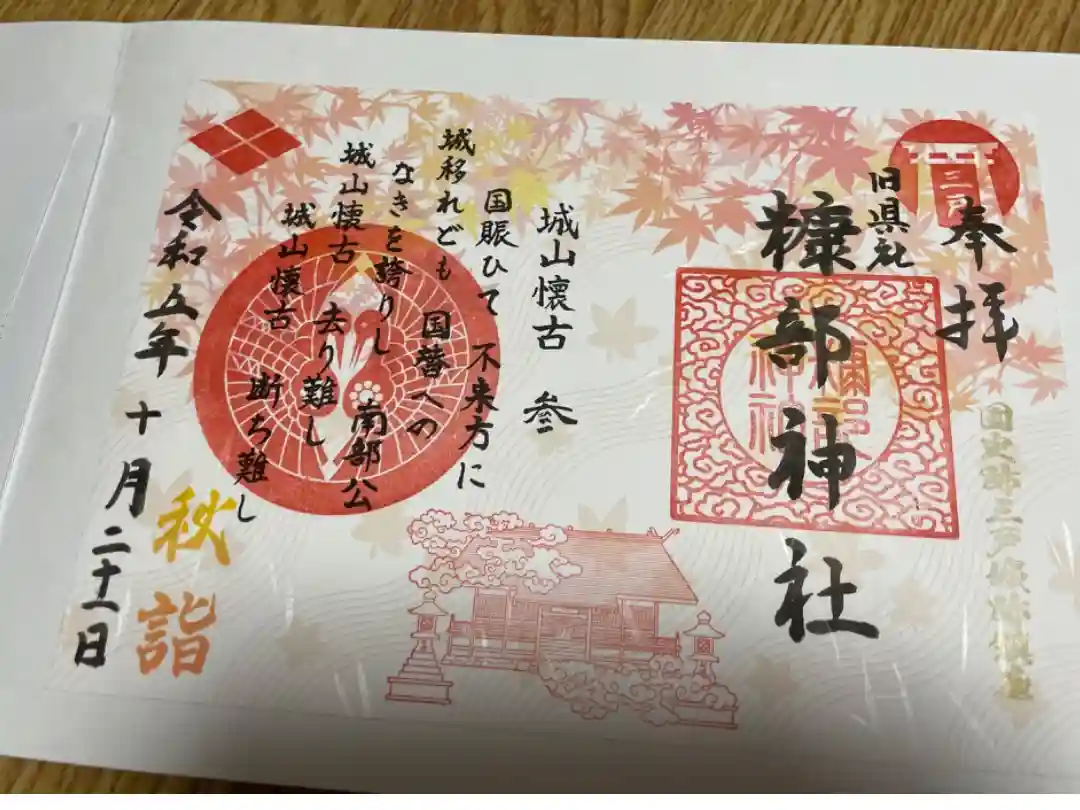 奉拝
旧県社
糠部神社
三戸
糠部
神社
国史跡三戸城跡鎮座
城山懐古 参
国賑ひて 不来方に
城移れども 国替への
なきを誇りし 南部公
城山懐古 去り難し
城山懐古 断ち難し
令和五年 十月二十一日
秋詣